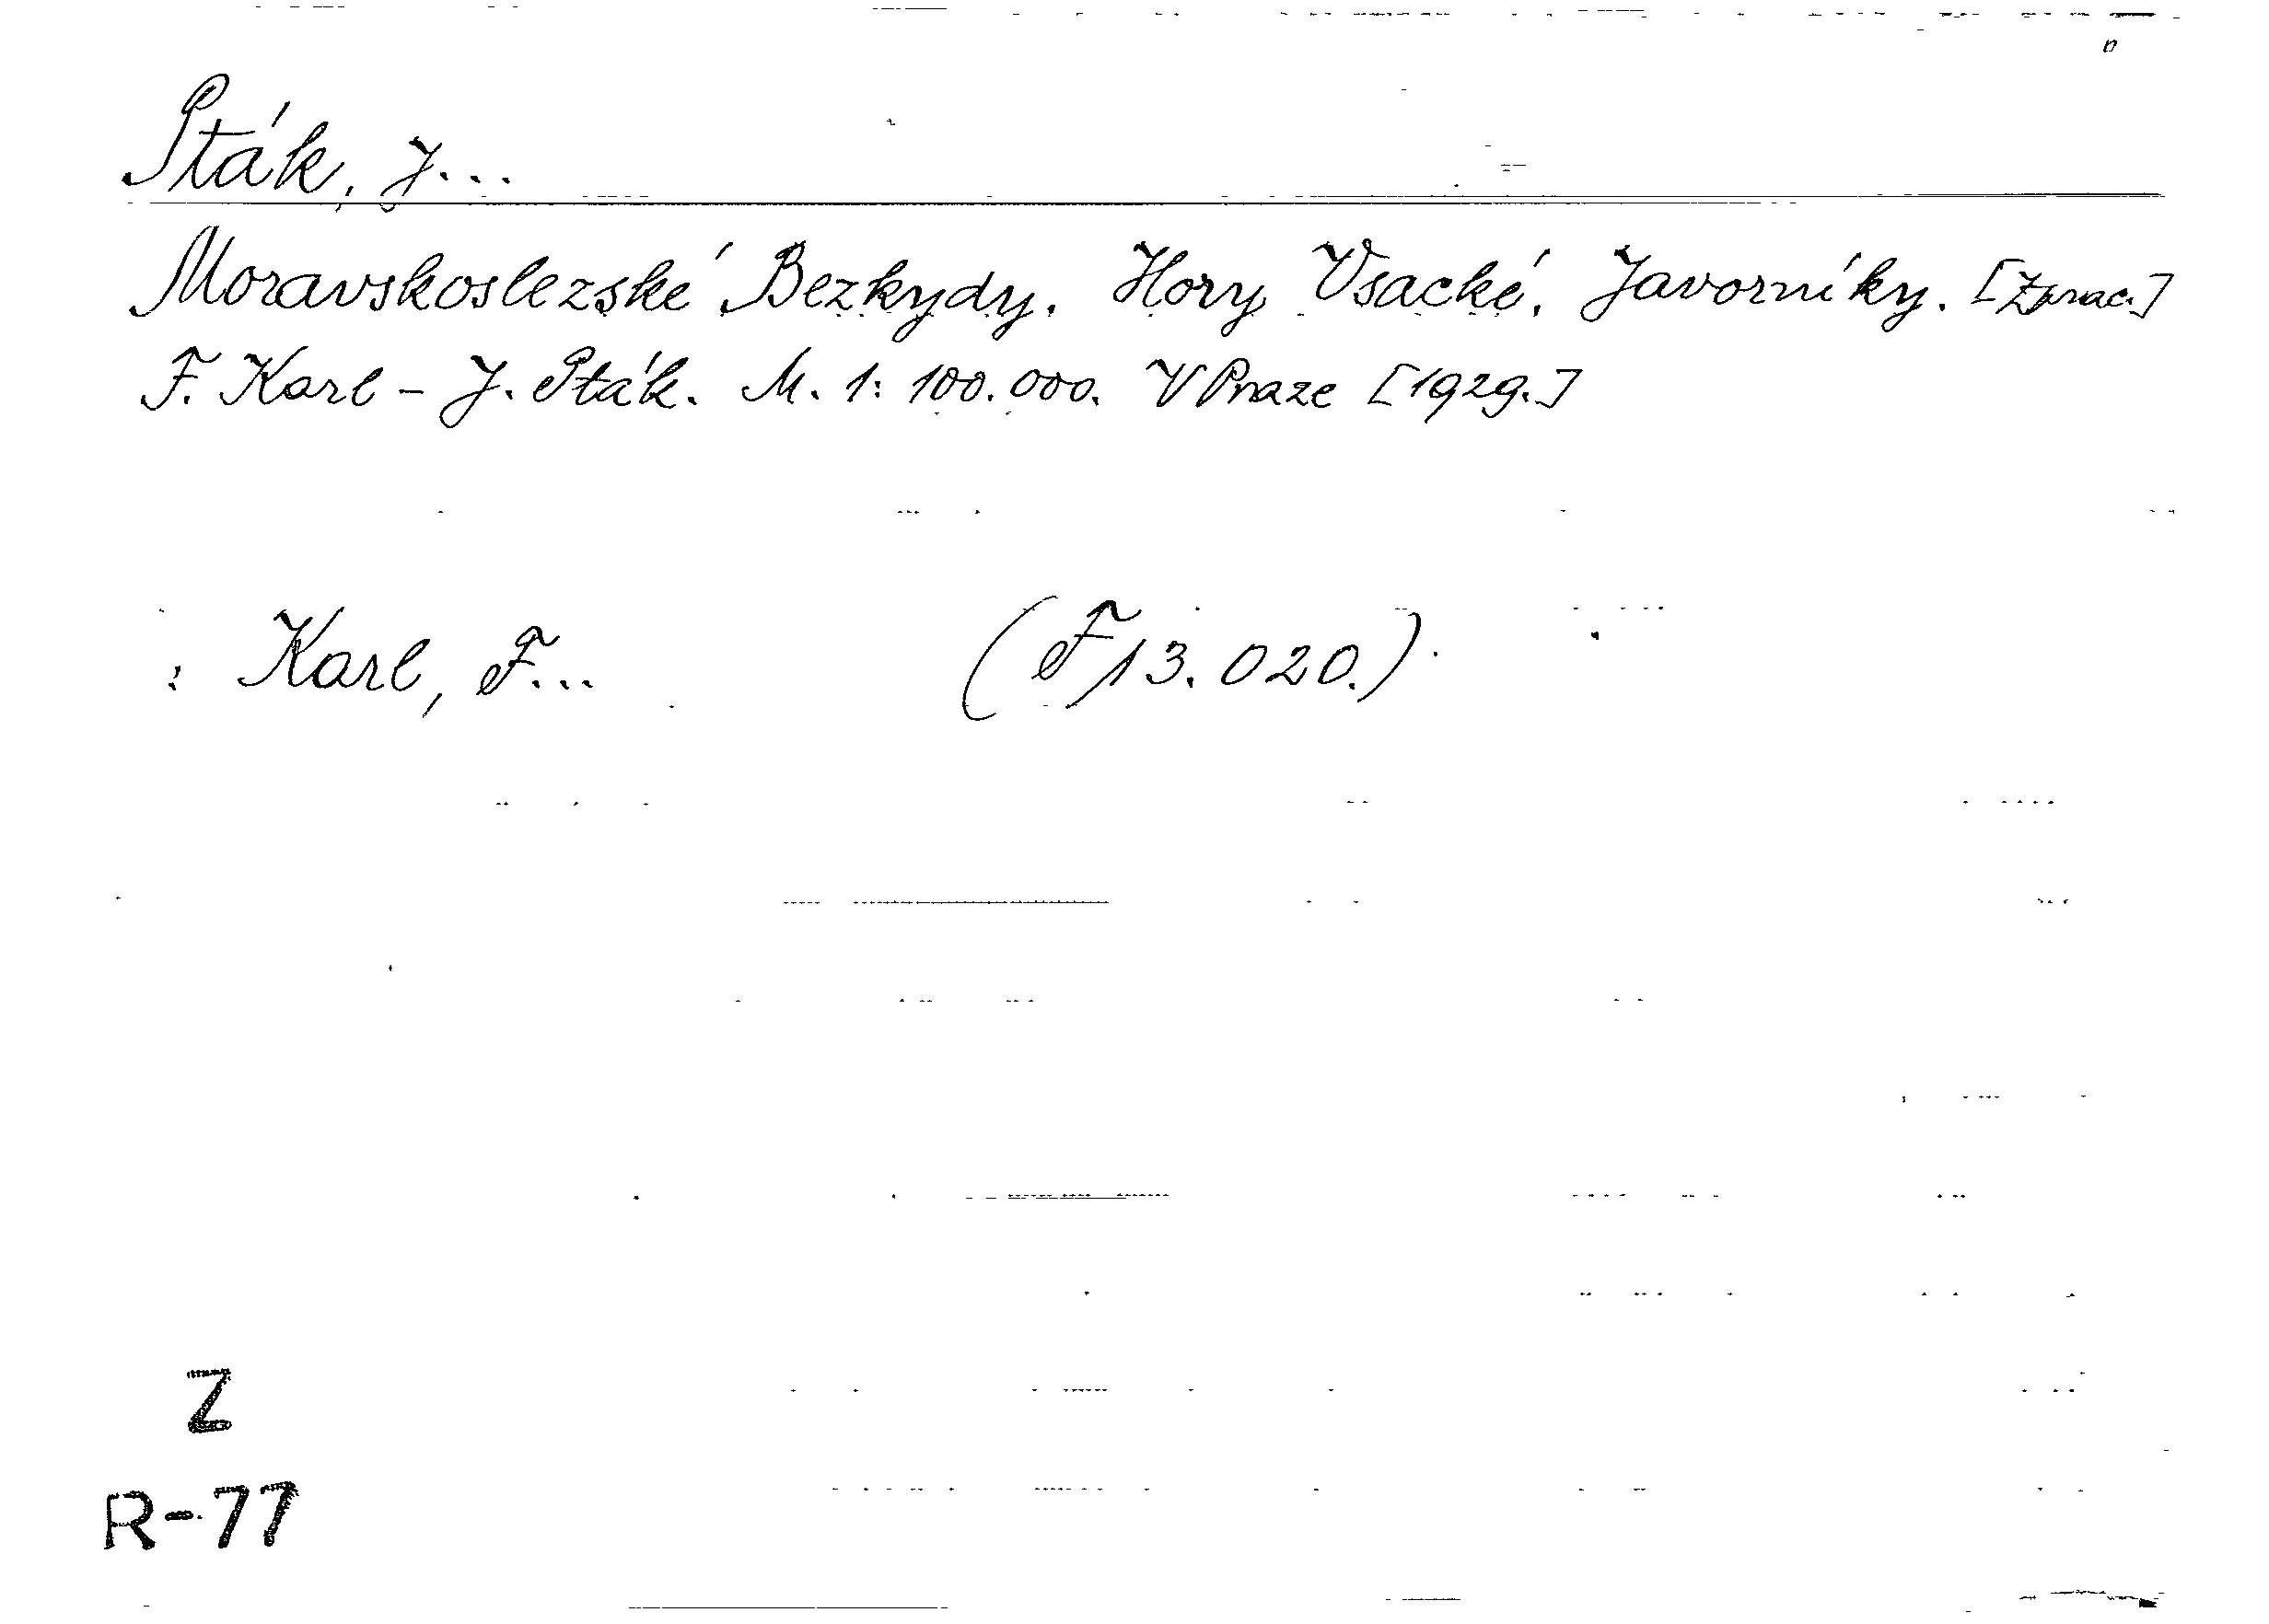 Pták, J...
Moravskoslezské Bezkydy. Hory Vsacké. Javorníky. [Zprac.]
F. Karl - J. Pták. M. 1: 100.000. V Praze [1929.]
: Karl, F... (F13.020.)
Z
R-77